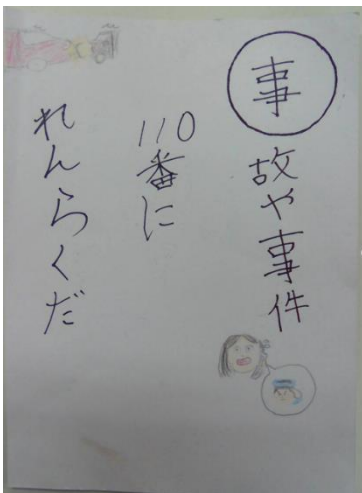 事故や事件
110番に
れんらくだ